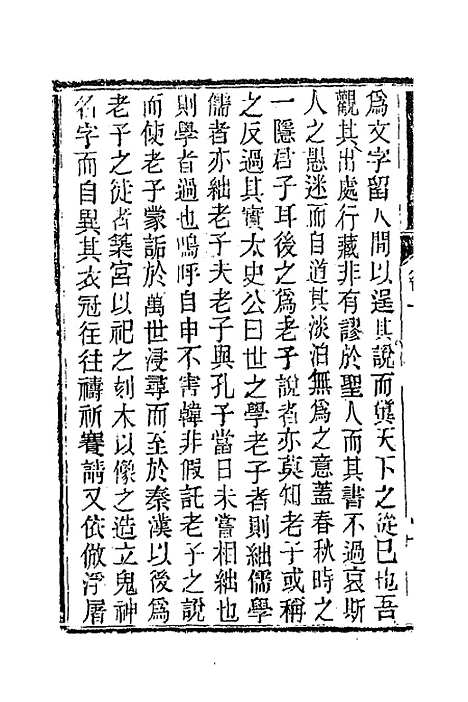 爲文字留人間以逞其說而冀天下之從已也吾
觀其出處行藏非有謬於聖人而其書不過哀斯
人之愚迷而自道其淡泊無爲之意蓋春秋時之
一隱君子耳後之爲老子說者亦莫知老子或稱
之反過其實太史公曰世之學老子者則絀儒學
儒者亦絀老子夫老子與孔子當日未嘗相絀也
則學者過也嗚呼自申不害韓非假託老子之說
而使老子蒙詬於萬世浸尋而至於秦漢以後爲
老子之徒者築宮以祀之刻木以像之造立鬼神
名字而自異其衣冠往往禱祈賽請又依倣浮屠